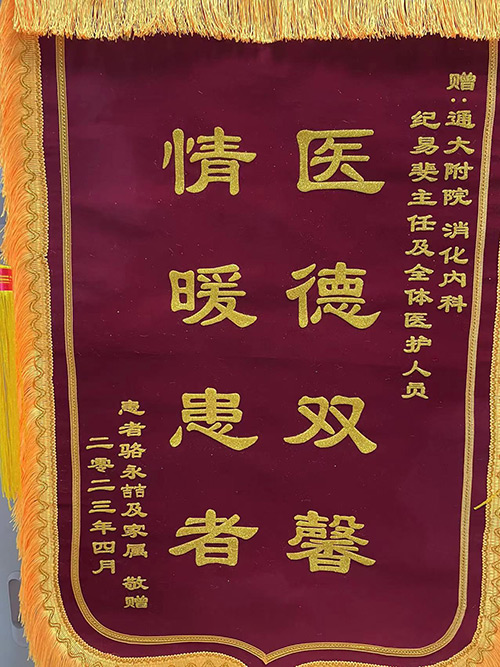 赠：通大附院 消化内科
纪易斐主任及全体医护人员
医德双馨
情暖患者
患者骆永喆及家属 敬赠
二零二三年四月